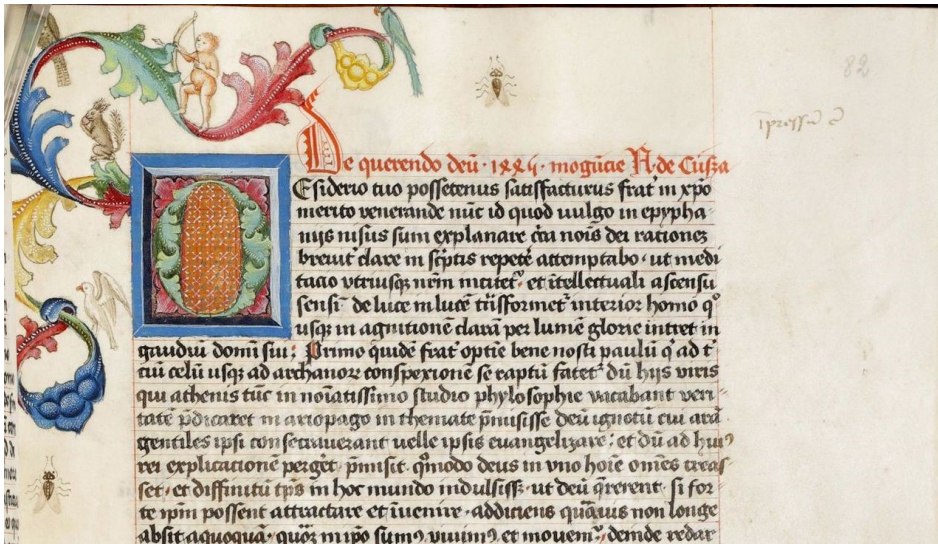 82
De querendo deū · 1445 · mogūcie N. de Cußa
Esiderio tuo possetenus satisfacturus frat̄ in xp̄o
merito venerande nūc id quod uulgo in epypha
nijs nisus sum explanare c̄ca nōis dei rationez
breuit̄ clare in sc̄ptis repetē attemptabo · ut medi
tacio vtriusqꝫ nr̄m incitet᷑ · et ītellectuali ascensu
sensī de luce in lucē trīsformet᷑ interior homo qͦ
usqꝫ in agnitionē clarā per lumē glorie intret in
gaudiū domī sui; Primo quidē frat̄ optīe bene nosti paulū q̄ ad t̄
ciū celū usqꝫ ad archanoꝝ conspexionē se raptū fatet᷑ dū hijs viris
qui athenis tūc in noīatissimo studio phylosophie vacabant veri
tatē p̄dicaret in ariopago in themate p̄misisse deū ignotū cui arā
gentiles ipsi consecrauerant uelle ipsis euangelizare; et dū ad huiꝰ
rei explicationē perget̄ · p̄misit · qͦmodo deus in vno hoīe omēs creas
set · et diffinitū tp̄s in hoc mundo indulsisset · ut deū q̄rerent · si for
te ip̄m possent attractare et īuenire · addiciens quāuis non longe
absit a quoquā · quoꝫ in ip̄o sumꝰ viuimꝰ et mouem᷑; deinde redar